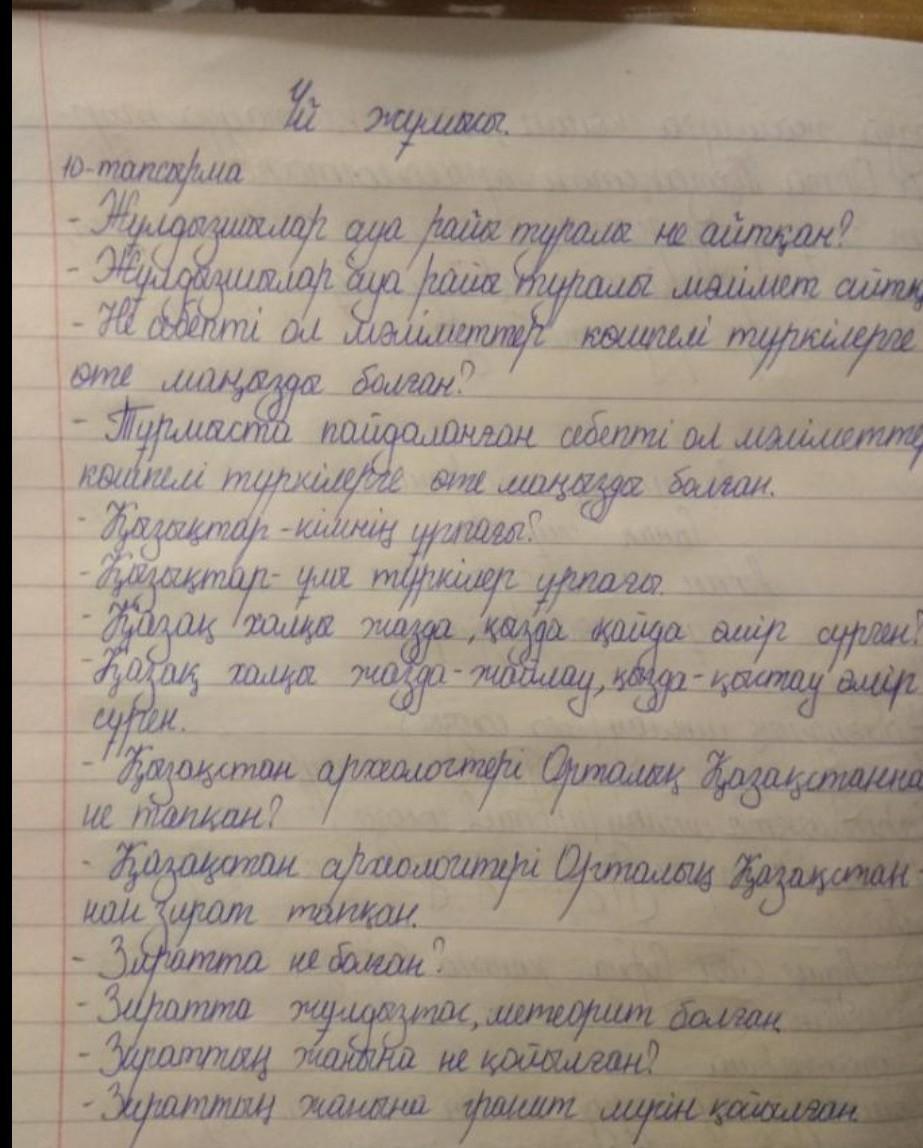 Үй жұмысы.
10-тапсырма
- Жұлдызшылар ауа райы туралы не айтқан?
- Жұлдызшылар ауа райы туралы мәлімет айтқ
- Не себепті ол мәліметтер көшпелі түркілерге
өте маңызды болған?
- Тұрмыста пайдаланған себепті ол мәліметтер
көшпелі түркілерге өте маңызды болған.
- Қазықтар - кімнің ұрпағы?
- Қазықтар - ұлы түркілер ұрпағы.
- Қазақ халқы жазда, қызда қайда өмір сүрген?
- Қазақ халқы жазда - жайлау, қызда - қыстау өмір
сүрген.
- Қазақстан археологтері Орталық Қазақстанна
не тапқан?
- Қазақстан археологтері Орталық Қазақстан-
нан зират тапқан.
- Зиратта не болған?
- Зиратта жұлдызтас, метеорит болған
- Зираттың жанына не қойылған?
- Зираттың жанына гранит мүсін қойылған